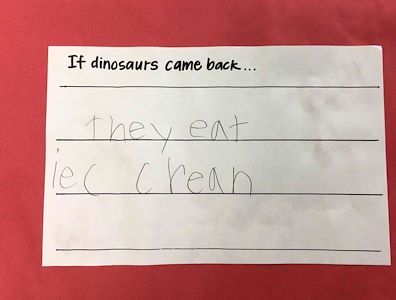 If dinosaurs came back...
they eat
iec crean